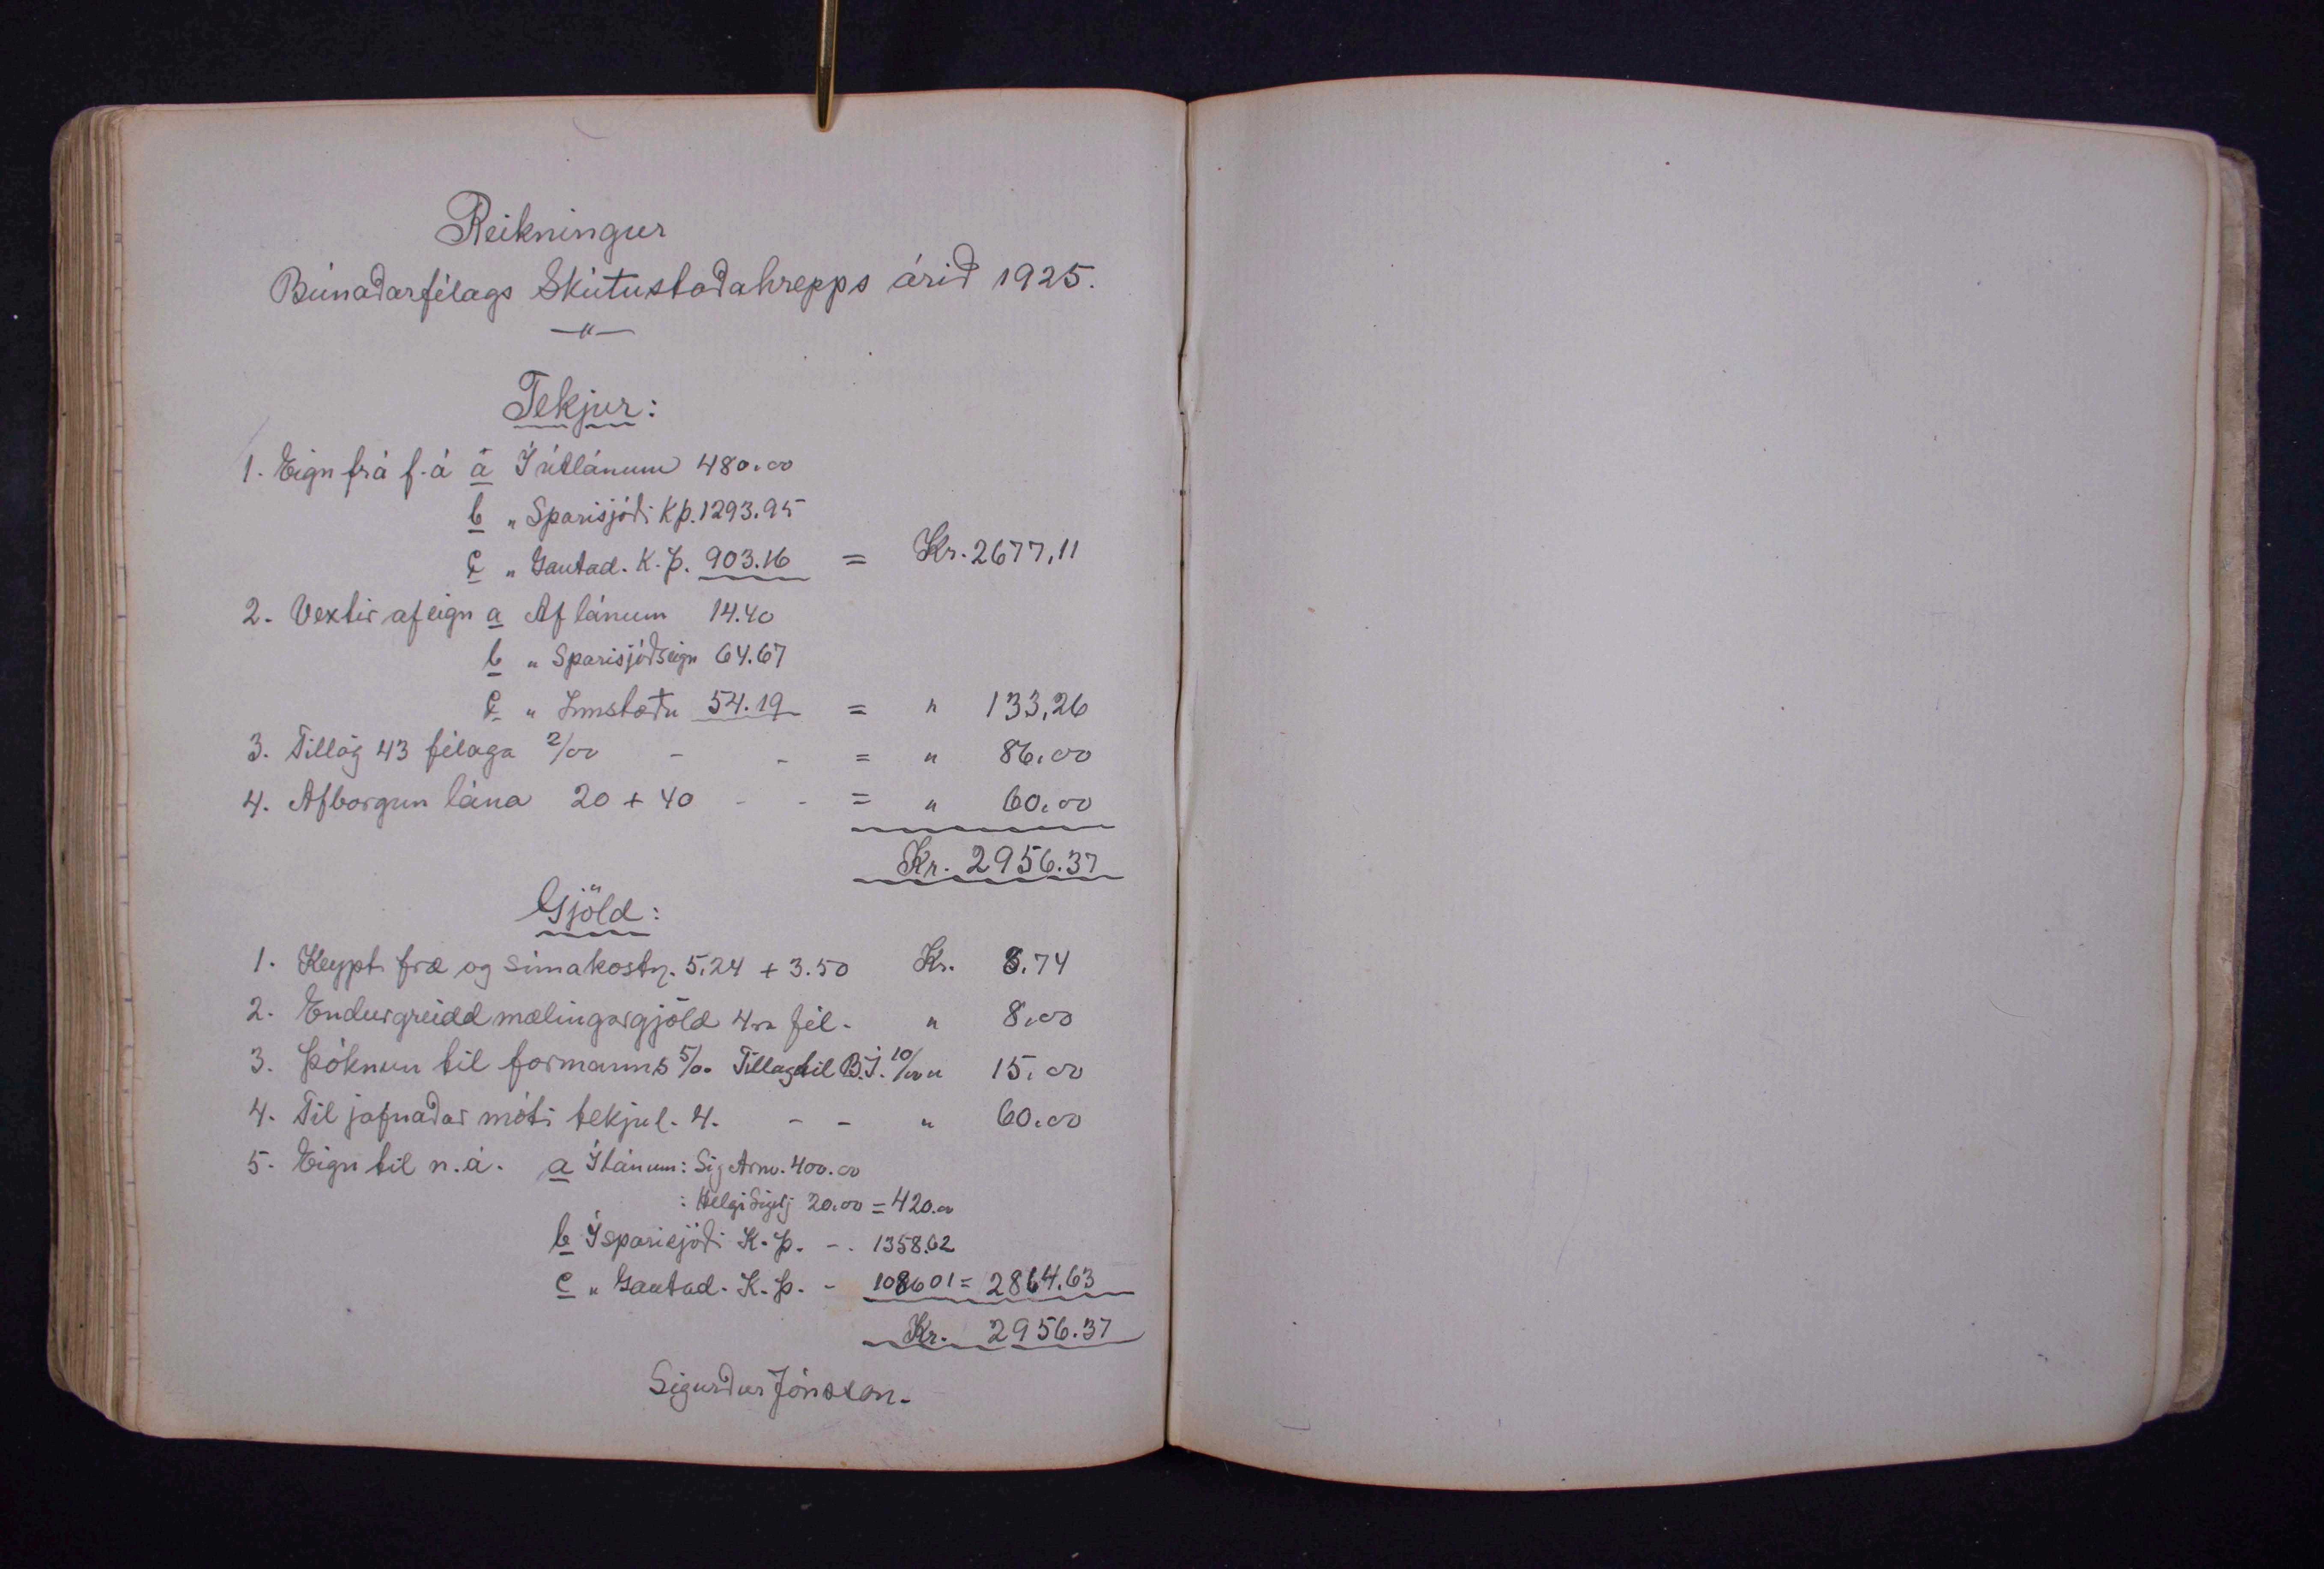 Reikningur
Búnaðarfélags Skútustaðahrepps árið 1925.
—"—
Tekjur:
1. Eign frá f.á a Í útlánum 480.00
b " Sparisjóði KÞ. 1293.95
c " Gautad. K.Þ. 903.16 = Kr. 2677,11
2. Vextir af eign a Af lánum 14.40
b " Sparisjóðseign 64.67
c " Innstæðu 54.19 = " 133,26
3. Tillög 43 félaga 2/00 - - = " 86.00
4. Afborgun lána 20 + 40 - - = " 60.00
Kr. 2956.37
Gjöld:
1. Keypt fræ og símakostn. 5.24 + 3.50 Kr. 8.74
2. Endurgreidd mælingargjöld 4ra fél. " 8,00
3. Þóknun til formanns 5/00 Tillag til B.Í. 10/00 " 15.00
4. Til jafnaðar móti tekjul. 4. - - " 60.00
5. Eign til n.á. a Í lánum: Sig Arnv. 400.00
: Helgi Sigurj 20.00 = 420.00
b Í sparisjóði K.Þ. -. 1358.62
c " Gautad. K.Þ. - 1086 01 = 2864.63
Kr. 2956.37
Sigurður Jónsson.